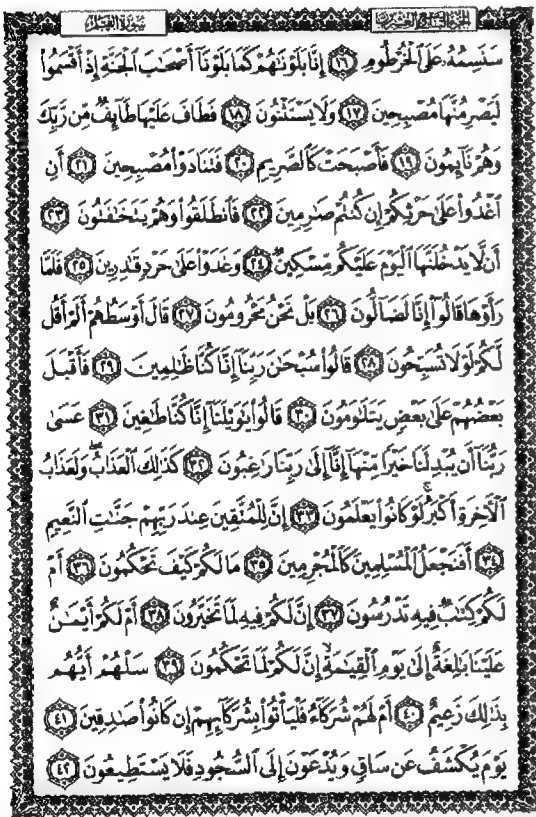 الجزء التاسع والعشرون سورة القلم
سَنَسِمُهُۥ عَلَى ٱلْخُرْطُومِ ١٦ إِنَّا بَلَوْنَٰهُمْ كَمَا بَلَوْنَآ أَصْحَٰبَ ٱلْجَنَّةِ إِذْ أَقْسَمُوا۟
لَيَصْرِمُنَّهَا مُصْبِحِينَ ١٧ وَلَا يَسْتَثْنُونَ ١٨ فَطَافَ عَلَيْهَا طَآئِفٌ مِّن رَّبِّكَ
وَهُمْ نَآئِمُونَ ١٩ فَأَصْبَحَتْ كَٱلصَّرِيمِ ٢٠ فَتَنَادَوْا۟ مُصْبِحِينَ ٢١ أَنِ
ٱغْدُوا۟ عَلَىٰ حَرْثِكُمْ إِن كُنتُمْ صَٰرِمِينَ ٢٢ فَٱنطَلَقُوا۟ وَهُمْ يَتَخَٰفَتُونَ ٢٣
أَن لَّا يَدْخُلَنَّهَا ٱلْيَوْمَ عَلَيْكُم مِّسْكِينٌ ٢٤ وَغَدَوْا۟ عَلَىٰ حَرْدٍ قَٰدِرِينَ ٢٥ فَلَمَّا
رَأَوْهَا قَالُوٓا۟ إِنَّا لَضَآلُّونَ ٢٦ بَلْ نَحْنُ مَحْرُومُونَ ٢٧ قَالَ أَوْسَطُهُمْ أَلَمْ أَقُل
لَّكُمْ لَوْلَا تُسَبِّحُونَ ٢٨ قَالُوا۟ سُبْحَٰنَ رَبِّنَآ إِنَّا كُنَّا ظَٰلِمِينَ ٢٩ فَأَقْبَلَ
بَعْضُهُمْ عَلَىٰ بَعْضٍ يَتَلَٰوَمُونَ ٣٠ قَالُوا۟ يَٰوَيْلَنَآ إِنَّا كُنَّا طَٰغِينَ ٣١ عَسَىٰ
رَبُّنَآ أَن يُبْدِلَنَا خَيْرًا مِّنْهَآ إِنَّآ إِلَىٰ رَبِّنَا رَٰغِبُونَ ٣٢ كَذَٰلِكَ ٱلْعَذَابُ ۖ وَلَعَذَابُ
ٱلْءَاخِرَةِ أَكْبَرُ ۚ لَوْ كَانُوا۟ يَعْلَمُونَ ٣٣ إِنَّ لِلْمُتَّقِينَ عِندَ رَبِّهِمْ جَنَّٰتِ ٱلنَّعِيمِ
٣٤ أَفَنَجْعَلُ ٱلْمُسْلِمِينَ كَٱلْمُجْرِمِينَ ٣٥ مَا لَكُمْ كَيْفَ تَحْكُمُونَ ٣٦ أَمْ
لَكُمْ كِتَٰبٌ فِيهِ تَدْرُسُونَ ٣٧ إِنَّ لَكُمْ فِيهِ لَمَا تَخَيَّرُونَ ٣٨ أَمْ لَكُمْ أَيْمَٰنٌ
عَلَيْنَا بَٰلِغَةٌ إِلَىٰ يَوْمِ ٱلْقِيَٰمَةِ ۙ إِنَّ لَكُمْ لَمَا تَحْكُمُونَ ٣٩ سَلْهُمْ أَيُّهُم
بِذَٰلِكَ زَعِيمٌ ٤٠ أَمْ لَهُمْ شُرَكَآءُ فَلْيَأْتُوا۟ بِشُرَكَآئِهِمْ إِن كَانُوا۟ صَٰدِقِينَ ٤١
يَوْمَ يُكْشَفُ عَن سَاقٍ وَيُدْعَوْنَ إِلَى ٱلسُّجُودِ فَلَا يَسْتَطِيعُونَ ٤٢